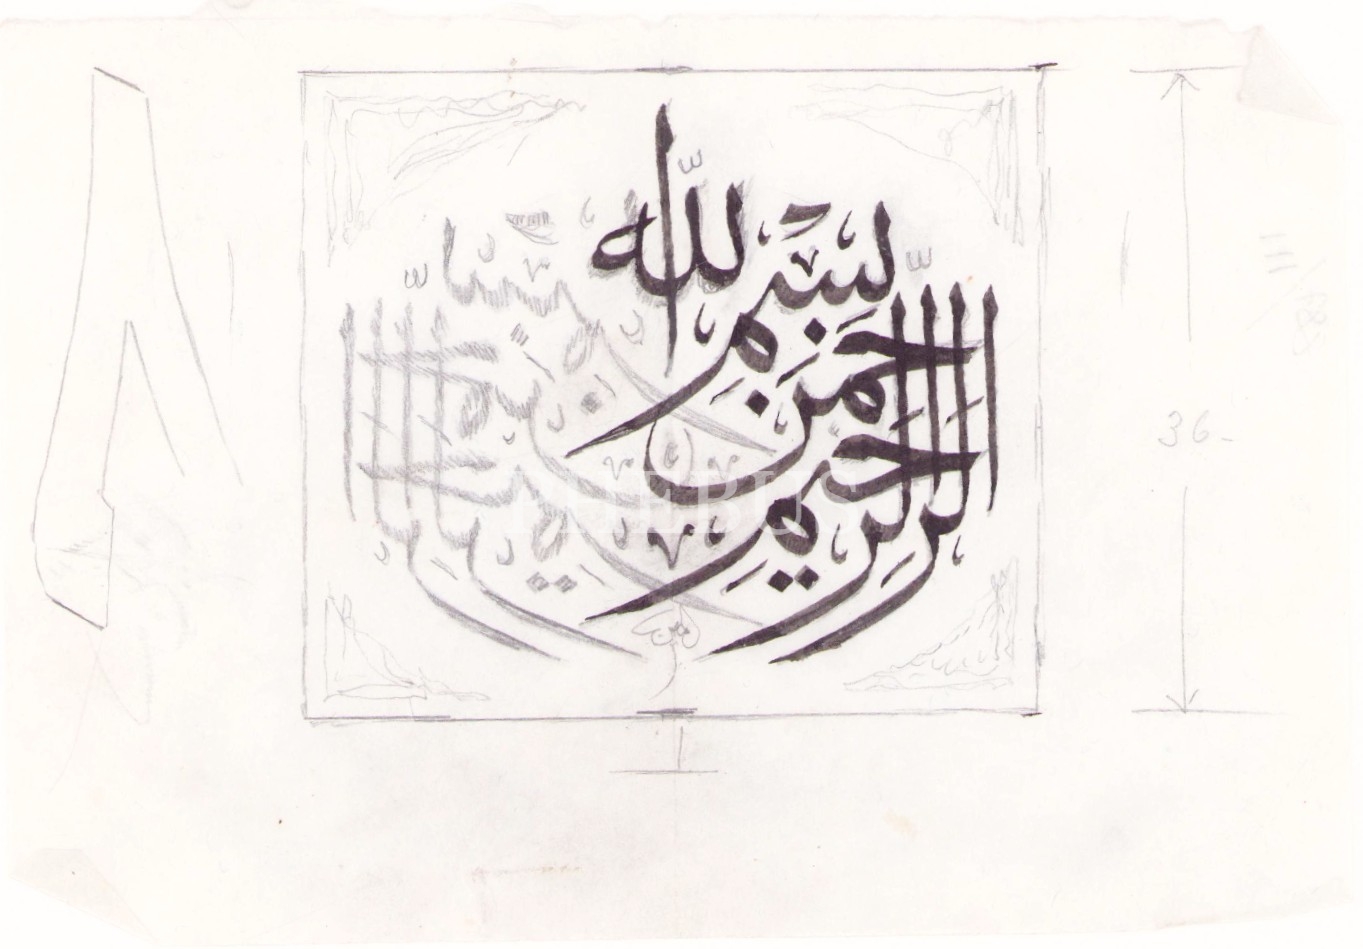 بسم الله
الرحمن
الرحيم
36-
PHEBUS